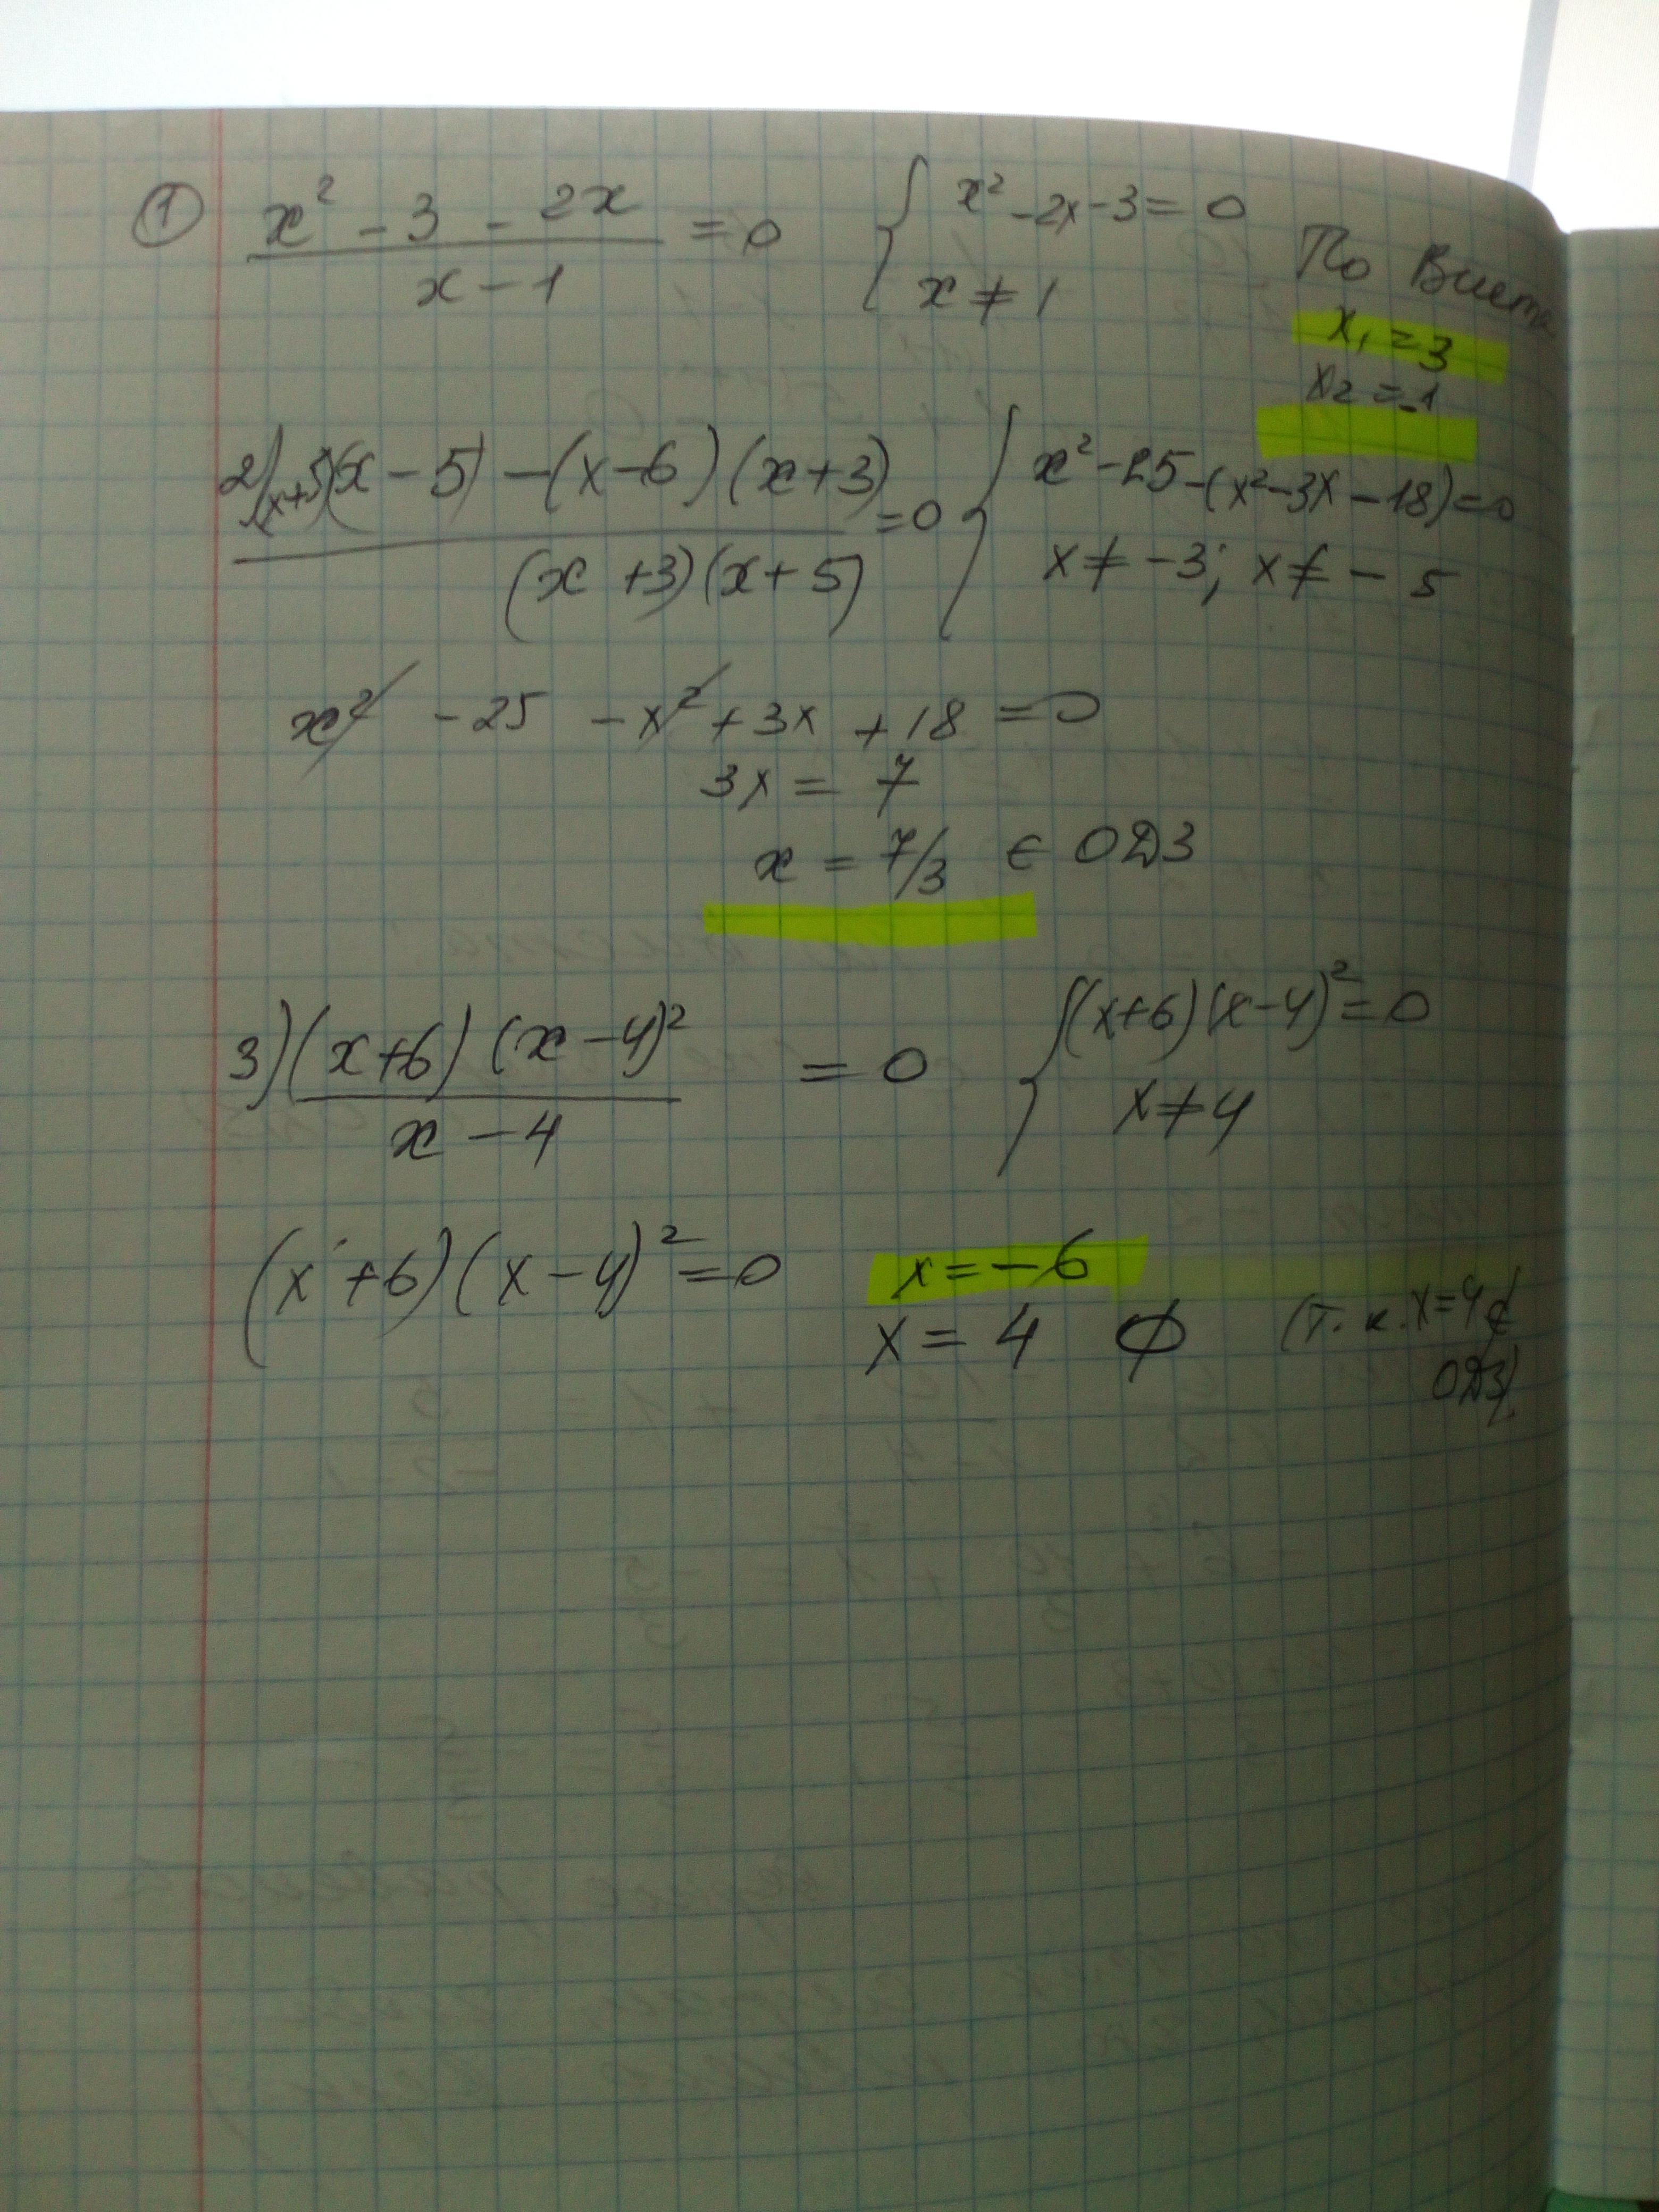 ① (x² - 3 - 2x)/(x - 1) = 0 { x² - 2x - 3 = 0
x ≠ 1
По Виета
x₁ = 3
x₂ = -1
2) ((x+5)(x - 5) - (x - 6)(x + 3))/((x + 3)(x + 5)) = 0 { x² - 25 - (x² - 3x - 18) = 0
x ≠ -3; x ≠ - 5
x² - 25 - x² + 3x + 18 = 0
3x = 7
x = 7/3 ∈ ОДЗ
3) ((x+6)(x - 4)²)/(x - 4) = 0 { (x+6)(x - 4)² = 0
x ≠ 4
(x + 6)(x - 4)² = 0 x = - 6
x = 4 ∅ (т. к. x = 4 ∉
ОДЗ)